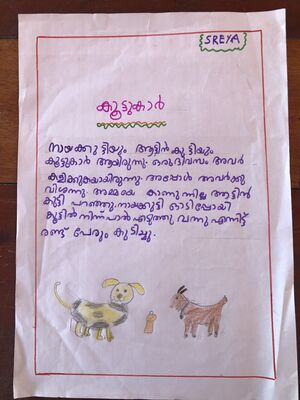 SREYA
കൂട്ടുകാർ
നായക്കുട്ടിയും ആട്ടിൻകുട്ടിയും
കൂട്ടുകാർ ആയിരുന്നു. ഒരുദിവസം അവർ
കളിക്കുകയായിരുന്നു. അപ്പോൾ അവർക്കു
വിശന്നു. അമ്മയെ കാണുന്നില്ല ആട്ടിൻ
കുട്ടി പറഞ്ഞു. നായക്കുട്ടി ഓടിപ്പോയി
കൂട്ടിൽ നിന്ന് പാൽ എടുത്തു വന്നു എന്നിട്ട്
രണ്ട് പേരും കുടിച്ചു.